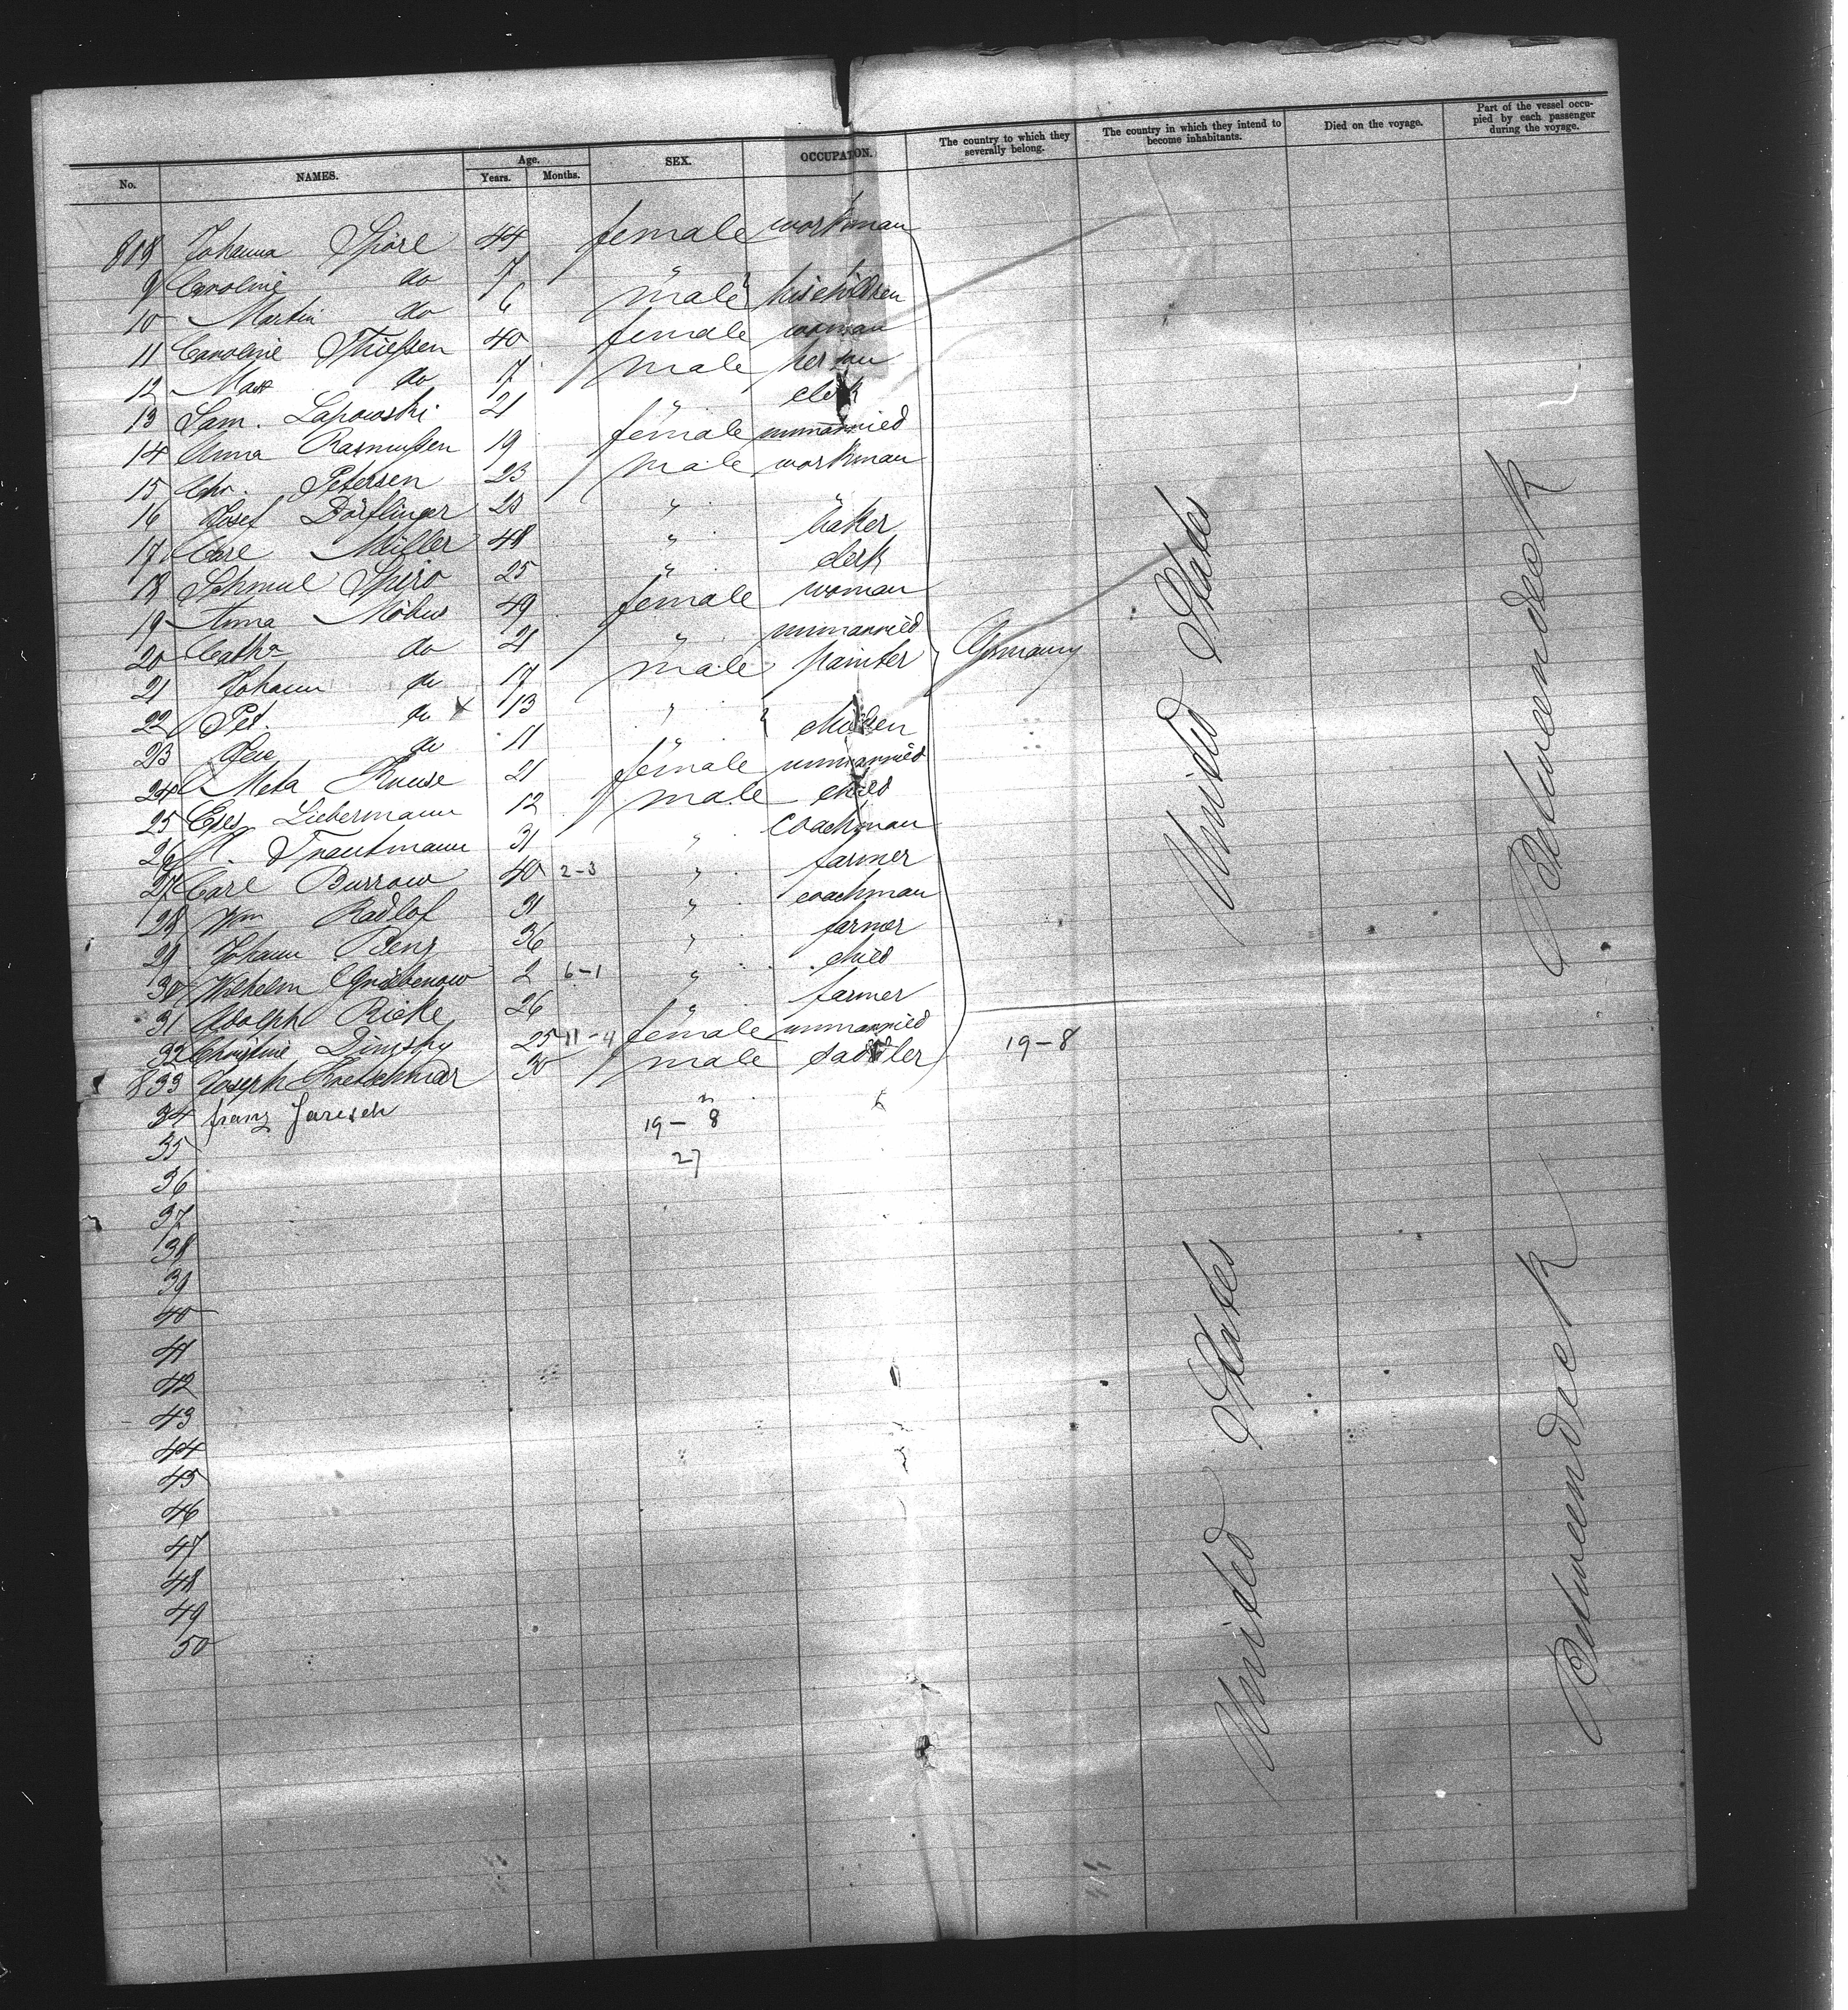 No. NAMES. Age. Years. Months. SEX. OCCUPATION. The country to which they severally belong. The country in which they intend to become inhabitants. Died on the voyage. Part of the vessel occupied by each passenger during the voyage.
808 Johanna Spörl 44 female workman
9 Caroline do 7 "
10 Martin do 6 male his children
11 Caroline Thießen 40 female woman
12 Max do 7 male her son
13 Sam. Lapowski 21 " clerk
14 Anna Rasmußen 19 female unmarried
15 Chr. Petersen 23 male workman
16 Josef Dörflinger 28 " "
17 Carl Müller 48 " baker
18 Schmul Spiro 25 " clerk
19 Anna Möbus 49 female woman
20 Catha do 21 " unmarried
21 Johann do 17 male painter
22 Pet. do x 13 "
23 do 11 " children
24 Meta Kruse 21 female unmarried
25 Liebermann 12 male child
26 Trautmann 31 " coachman
27 Carl Burrow 40 2-3 " farmer
28 Wm Radlof 31 " coachman
29 Johann Benz 36 " farmer
30 Wilhelm Gräbenow 2 6-1 " child
31 Adolph Ricke 26 " farmer
32 Christine Dimsky 25 11-4 female unmarried
833 Joseph Kretschmar 30 male saddler
Germany
United States
Betweendeck
19-8
34 franz Jaresch "
35 19-8
36 27
37
38
39
40
41
42
43
44
45
46
47
48
49
50
United States
Betweendeck